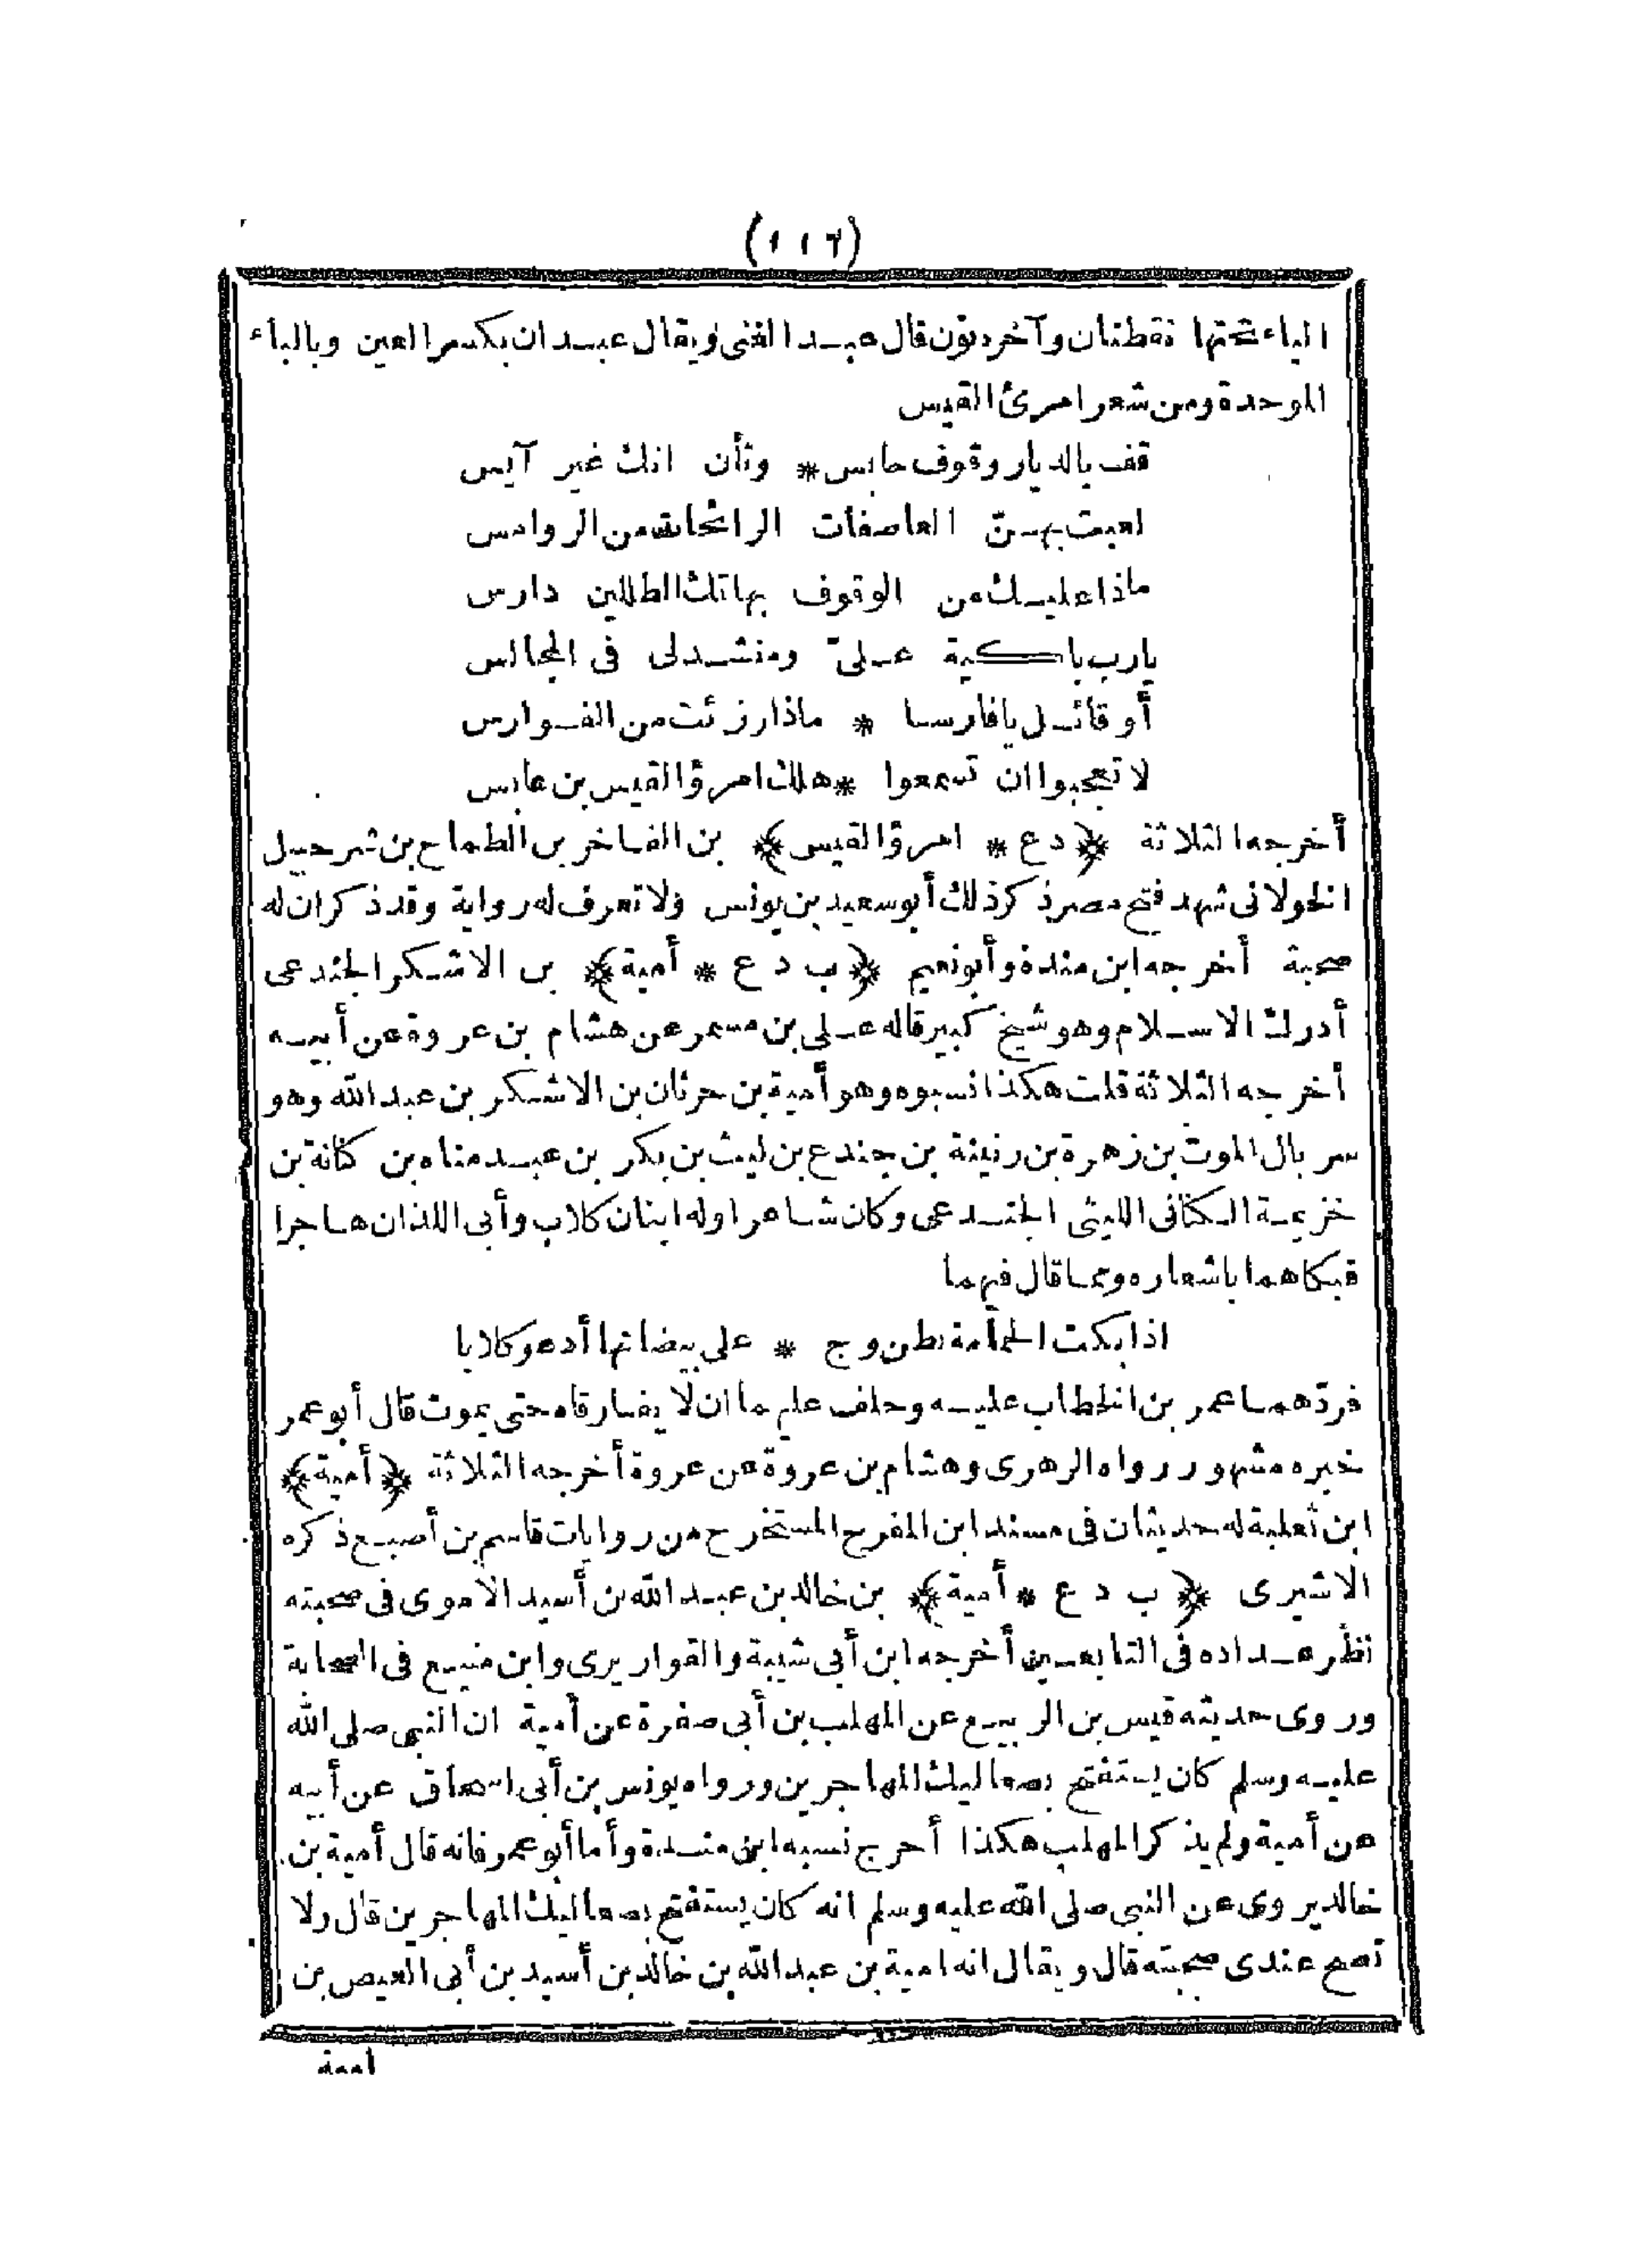 (١١٦)
الياء تحتها نقطتان وآخره نون قال عبد الغنى ويقال عبدان بكسر العين وبالباء
الموحدة ومن شعر امرئ القيس
قف بالديار وقوف حابس * وتأن انك غير آيس
لعبت بهنّ العاصفات الرائحات من الروامس
ماذا عليك من الوقوف بهالك الطللين دارس
يارب باكية علىّ ومنشد لى فى المجالس
أو قائل يا فارسا * ماذا رزئت من الفوارس
لا تعجبوا ان تسمعوا * هلك امرؤ القيس بن عابس
أخرجه الثلاثة ﴿د ع * امرؤ القيس﴾ بن الفاخر بن الطماح بن شرحبيل
الخولانى شهد فتح مصر ذكر ذلك أبو سعيد بن يونس ولا تعرف له رواية وقد ذكر ان له
صحبة أخرجه ابن مندة وأبو نعيم ﴿ب د ع * أمية﴾ بن الاشكر الجندعى
أدرك الاسلام وهو شيخ كبير قاله على بن مسهر عن هشام بن عروة عن أبيه
أخرجه الثلاثة قلت هكذا نسبوه وهو أمية بن حرثان بن الاشكر بن عبد الله وهو
سربال الموت بن زهرة بن زنينة بن جندع بن ليث بن بكر بن عبد مناه بن كنانة بن
خزيمة الكنانى الليثى الجندعى وكان شاعرا وله ابنان كلاب وأبى اللذان هاجرا
فبكاهما باشعاره ومما قال فيهما
اذا بكت الحمامة بطن وج * على بيضاتها أدعو كلابا
فردّهما عمر بن الخطاب عليه وحلف عليهما ان لا يفارقاه حتى يموت قال أبو عمر
خبره مشهور رواه الزهرى وهشام بن عروة عن عروة أخرجه الثلاثة ﴿أمية﴾
ابن ثعلبة له حديثان فى مسند ابن المفرح المستخرج من روايات قاسم بن أصبغ ذكره
الاشيرى ﴿ب د ع * أمية﴾ بن خالد بن عبد الله بن أسيد الأموى فى صحبته
نظر عداده فى التابعين أخرجه ابن أبى شيبة والقواريرى وابن منيع فى الصحابة
وروى حديثه قيس بن الربيع عن المهلب بن أبى صفرة عن أمية ان النبى صلى الله
عليه وسلم كان يستفتح بصعاليك المهاجرين ورواه يونس بن أبى اسحاق عن أبيه
عن أمية ولم يذكر المهلب هكذا أخرج نسبه ابن مندة وأما أبو عمر فانه قال أمية بن
خالد يروى عن النبى صلى الله عليه وسلم انه كان يستفتح بصعاليك المهاجرين قال ولا
تصح عندى صحبته قال ويقال انه امية بن عبد الله بن خالد بن أسيد بن أبى العيص بن
امية